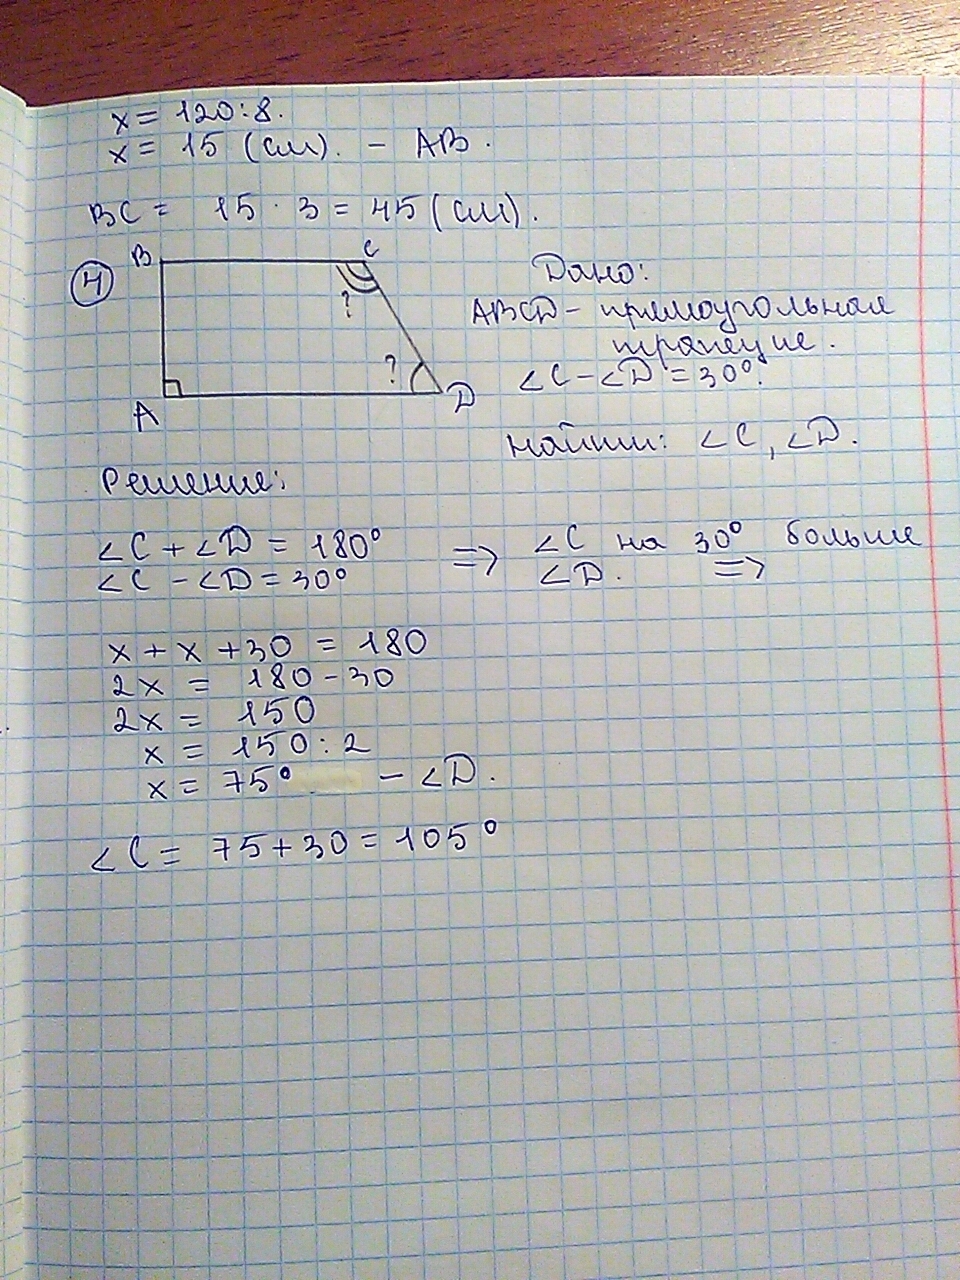 x = 120:8.
x = 15 (см). – AB.
BC = 15 · 3 = 45 (см).
4
B C
?
?
A D
Дано:
ABCD – прямоугольная
трапеция.
∠C – ∠D = 30°.
Найти: ∠C, ∠D.
Решение:
∠C + ∠D = 180°
∠C – ∠D = 30°
=> ∠C на 30° больше
∠D. =>
x + x + 30 = 180
2x = 180 – 30
2x = 150
x = 150 : 2
x = 75° – ∠D.
∠C = 75 + 30 = 105°